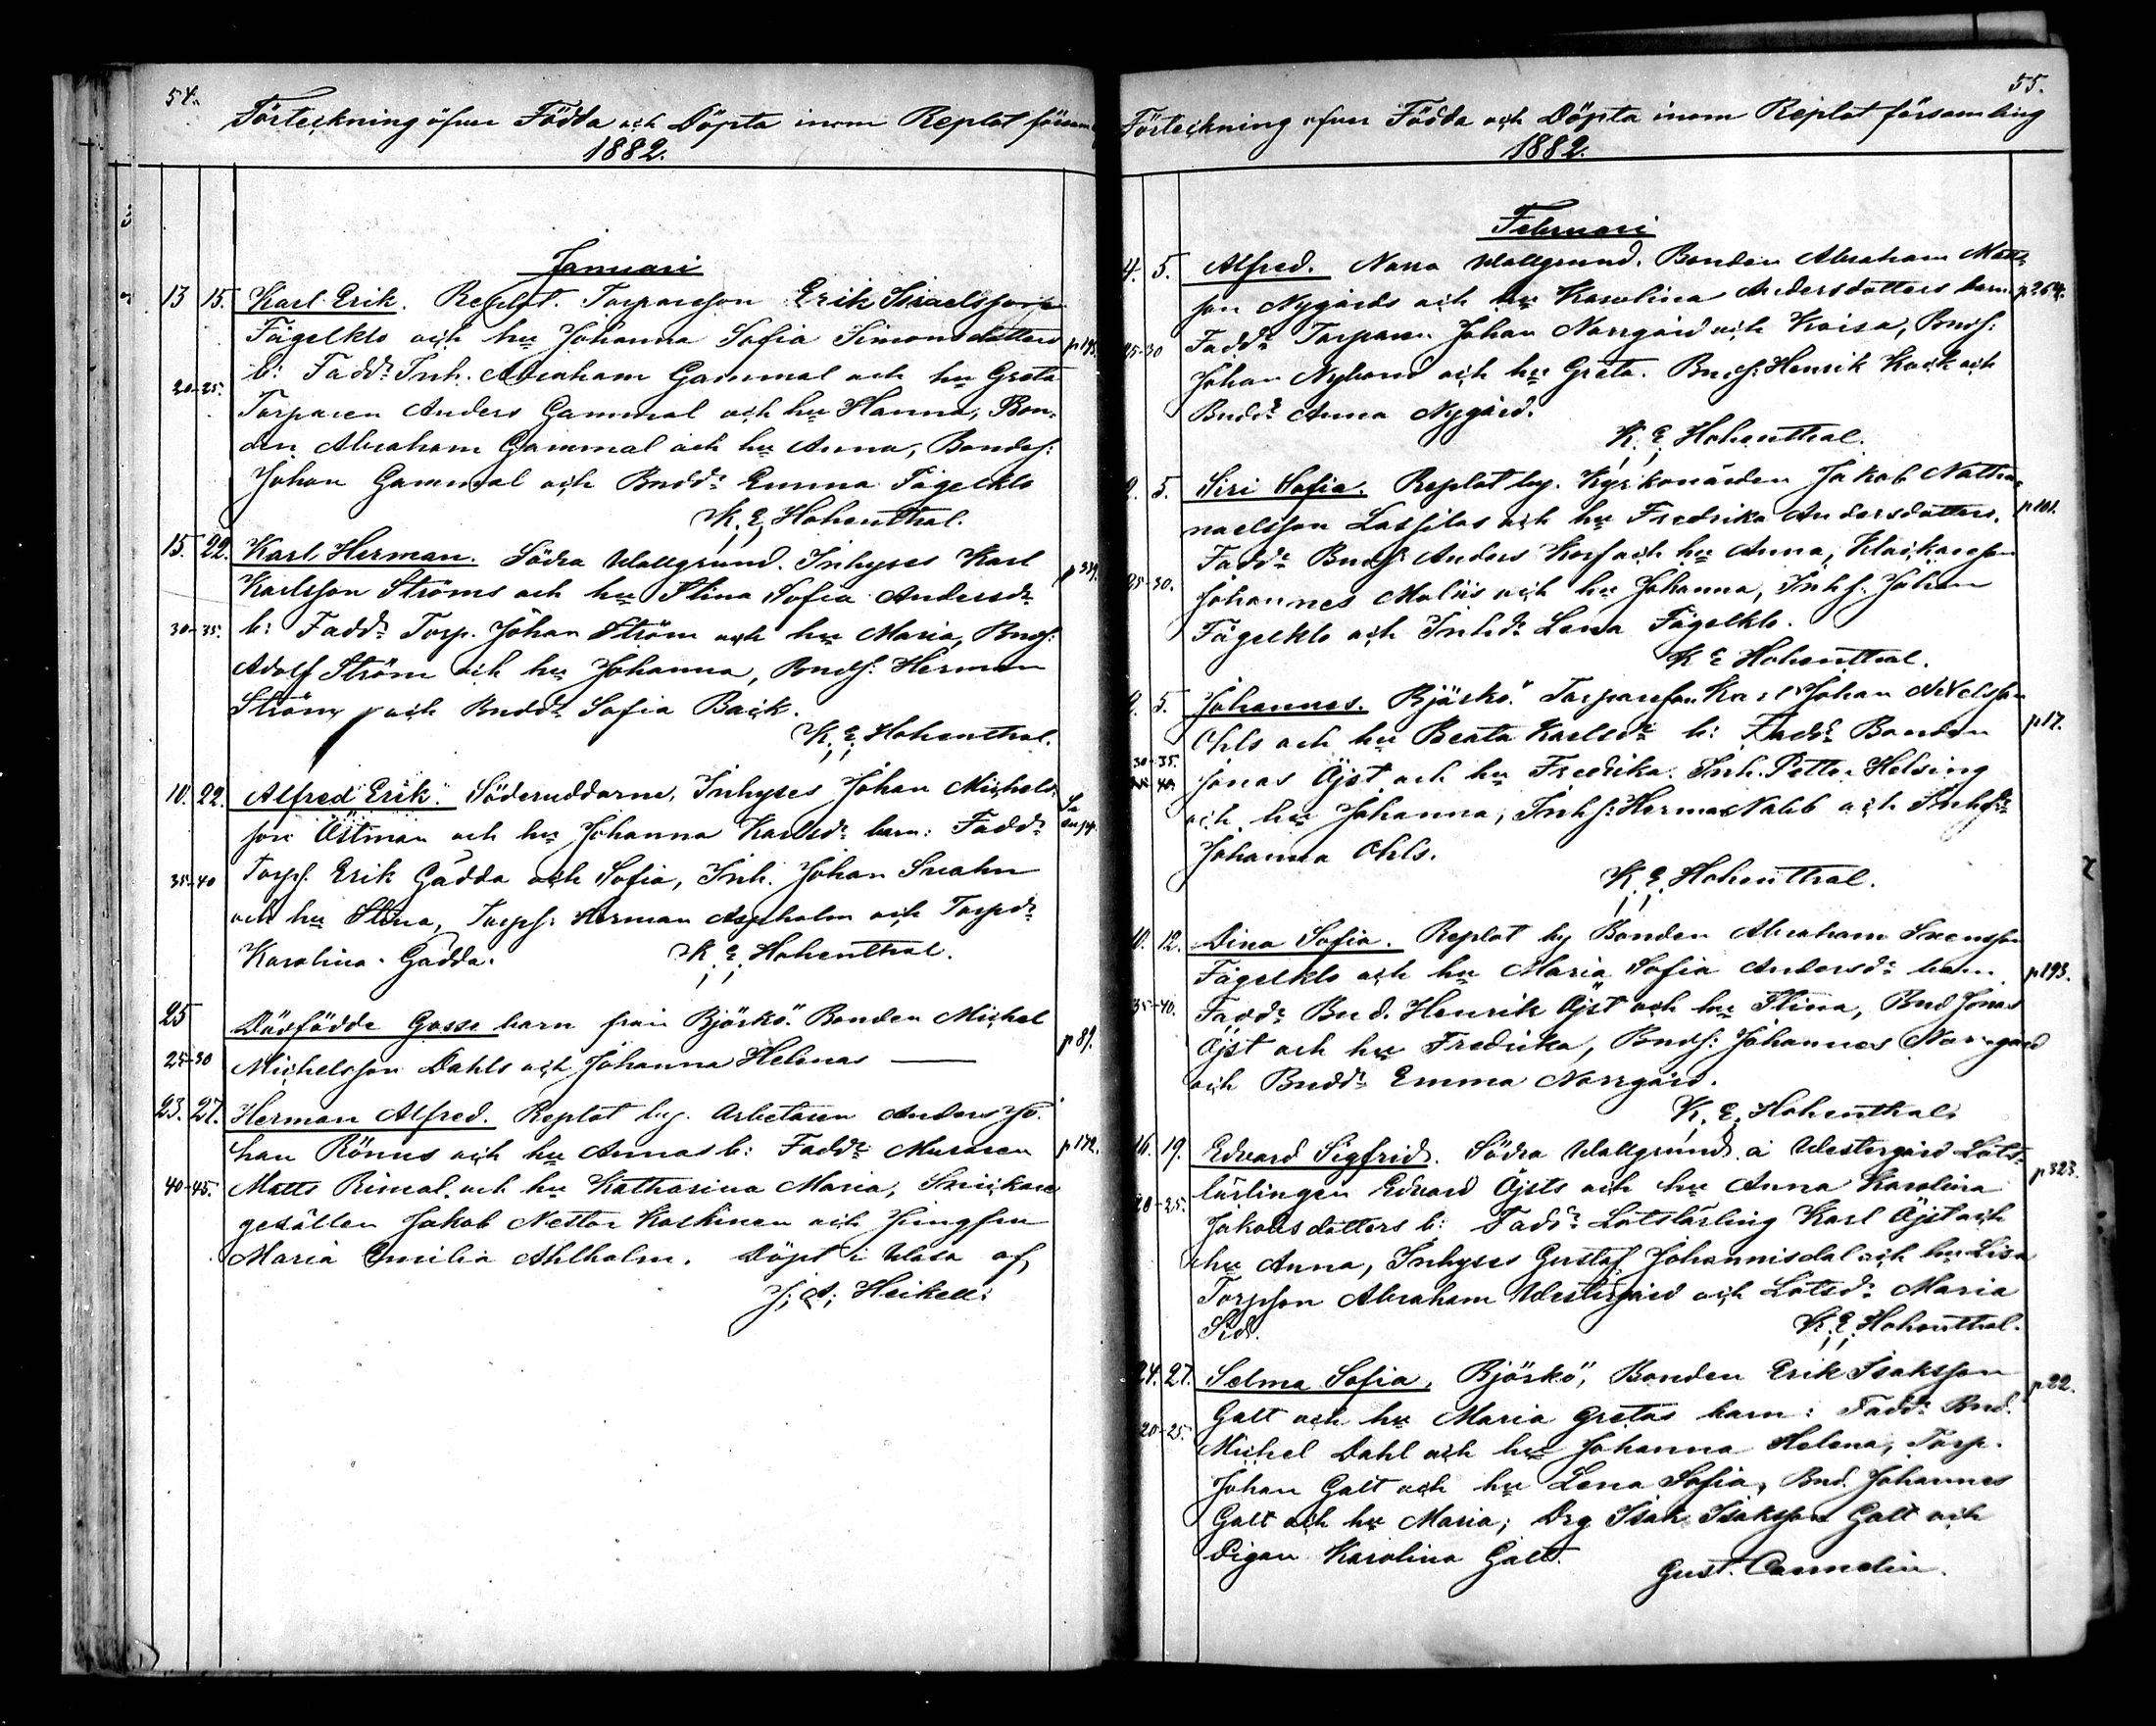 54.
Förteckning öfver Födda och Döpta inom Replot försam
1882.
Januari
13 15. Karl Erik. Replot. Torparesson Erik Israelsson
Fågelklo och hu Johanna Sofia Simonsdotters p 195
20-25. b: Fadd: Inh. Abraham Gammal och hu Greta
Torparen Anders Gammal och hu Hanna, Bon-
den Abraham Gammal och hu Anna, Bondes:
Johan Gammal och Bndd: Emma Fågelklo
K. E. Hohenthal.
15. 22. Karl Herman. Södra Wallgrund. Inhyses Karl
Karlsson Ströms och hu Stina Sofia Andersdr p 339.
30-35. b: Fadd: Torp. Johan Ström och hu Maria, Bnds:
Adolf Ström och hu Johanna, Bnds: Herman
Ström och Bndd: Sofia Back.
K. E. Hohenthal.
10. 22. Alfred Erik. Söderuddarne, Inhyses Johan Michels-
son Östman och hu Johanna Karlsdr barn: Fadd:
35-40 Torps. Erik Gädda och Sofia, Inh. Johan Svahn
och hu Stina, Torps: Herman Aspholm och Torpdr
Karolina Gädda. K. E. Hohenthal.
25 Dödfödde Gosse barn från Björkö. Bonden Michel
25-30 Michelsson Dahls och Johanna Helenas — p 89.
23. 27. Herman Alfred. Replot by. Arbetaren Anders Jo-
han Rönns och hu Annas b: Fadd: Muraren p 172.
40-45. Matts Rimal och hu Katharina Maria, Snickare
gesällen Jakob Nestor Koskinen och Jungfru
Maria Emilia Ahlholm. Döpt i Wasa af
J. A. Heikel:
55.
Förteckning öfver Födda och Döpta inom Replot församling
1882.
Februari
4. 5. Alfred. Norra Wallgrund. Bonden Abraham Matts-
son Nygårds och hu Karolina Andersdotters barn p 264.
25-30 Fadd: Torparen Johan Norrgård och Kaisa, Bnds:
Johan Nylund och hu Greta. Bnds: Henrik Kack och
Bndd: Anna Nygård.
K. E. Hohenthal.
2. 5. Siri Sofia. Replot by. Kyrkovärden Jakob Natha-
naelsson Lassilas och hu Fredrika Andersdotters. p 101.
Fadd: Bnds Anders Kors och hu Anna, Klockaresson
25-30. Johannes Molis och hu Johanna, Inhs: Johan
Fågelklo och Inhd: Lena Fågelklo.
K E Hohenthal.
2. 5. Johannes. Björkö. Torpareson Karl Johan Abelsson
Ohls och hu Beata Karlsdr b: Fadd: Bonden p 17.
30-35. Jonas Öjst och hu Fredrika. Inh. Petter Helsing
40. och hu Johanna, Inhs: Herman Nabb och Inhdr
Johanna Ohls.
K. E. Hohenthal.
10. 12. Dina Sofia. Replot by Bonden Abraham Svensson
Fågelklo och hu Maria Sofia Andersdr barn p 193.
35-40. Fadd: Bnd. Henrik Öjst och hu Stina, Bnd Jonas
Öjst och hu Fredrika, Bnds: Johannes Norrgård
och Bndd: Emma Norrgård.
K. E. Hohenthal.
16. 19. Edvard Sigfrid. Södra Wallgrund å Westergård Lots-
lärlingen Edvard Öjsts och hu Anna Karolina p 323.
20-25. Jakobsdotters b: Fadd: Lotslärling Karl Öjst och
hu Anna, Inhyses Gustaf Johannisdal och hu Lisa
Torpson Abraham Westergård och Lotsd: Maria
Sid.
K. E. Hohenthal.
24. 27. Selma Sofia, Björkö, Bonden Erik Isaksson
Galt och hu Maria Gretas barn: Fadd: Bnd. p 22.
20-25. Michel Dahl och hu Johanna Helena, Torp.
Johan Galt och hu Lena Sofia, Bnd. Johannes
Galt och hu Maria; Drg Isak Isaksson Galt och
Pigan Karolina Galt.
Gust. Cannelin.